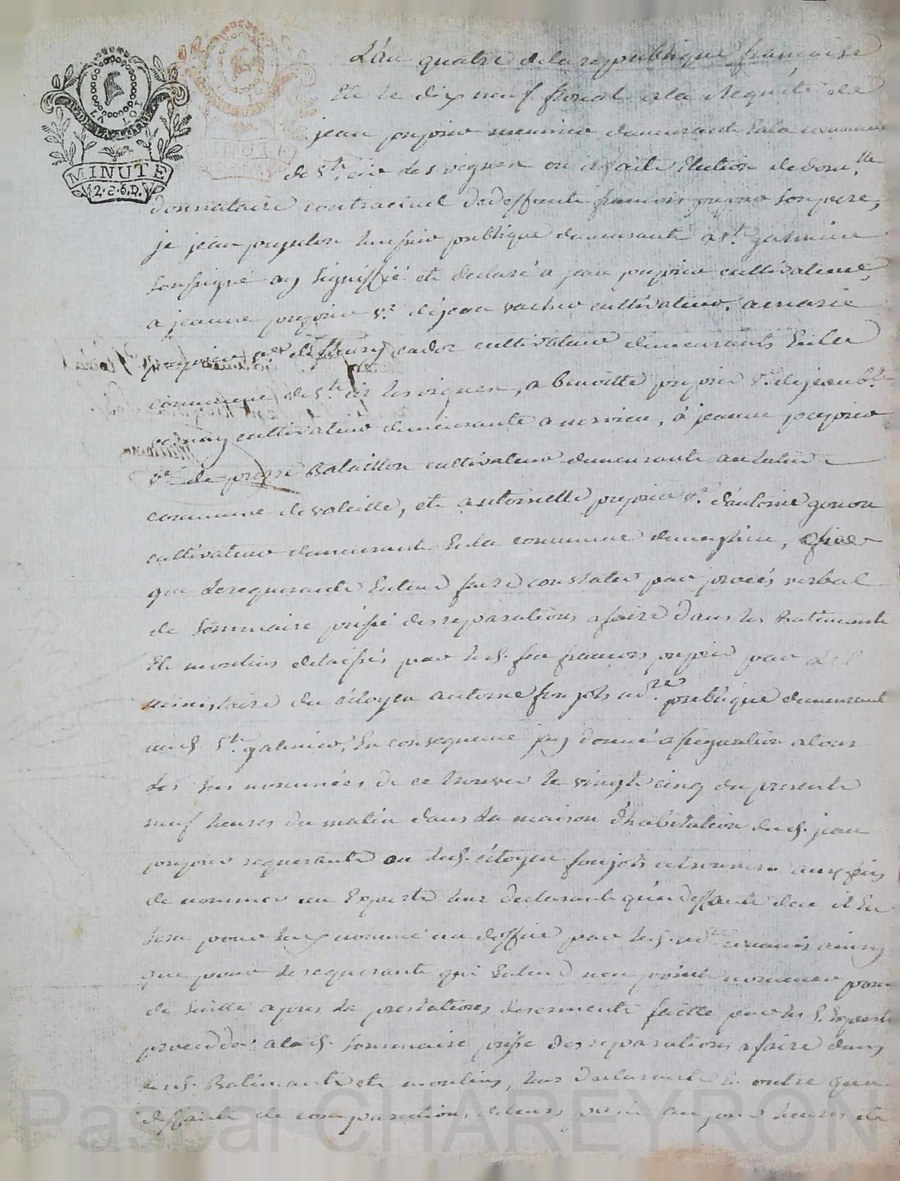 MINUTE
2.c.6.D.
L'an quatre de la republique françoise
Et le dix neuf floreal a la Requete de
jean pupier meunier demeurant En la commune
de St. cir les vignes ou Il fait Election de dom.lle
donnataire contractuel de deffunt francois pupier son pere,
je jean pupulon huissier publique demeurant a St. galmier
soussigné ay signiffié et declaré a jean pupier cultivateur,
a jeanne pupier Ve. de jean vacher cultivateur, a marie
pupier et cador cultivateur demeurants En la
commune de St. cir les vignes, a benoitte pupier Ve. de jean
cultivateur demeurante a nervieu, à jeanne pupier
Ve. de pierre Bataillon cultivateur demeurante au
commune de valeille, et antoinette pupier Ve. d'antoine gonon
cultivateur demeurant En la commune de
que le requerant Entend faire constater par procès verbal
de sommaire prisée des reparations a faire dans les Batiments
Et moulins delaissés par led. feu françois pupier par le
ministaire du citoyen antoine fonjols nore publique demeurant
aud. St. galmier, En consequence jay donné assignation a tous
les sus nommées de ce trouver le vingt cinq du present
neuf heures du matin dans la maison d'habitation dud. jean
pupier requerant ou led. citoyen fonjols ce trouvera aux fins
de nommer un Experts leur declarant qu'a deffaut de ce il En
sera pour Eux nommé un d'office par led. ainsy
que pour le requerant qui Entend nommer pour
de suitte apres la prestations de serment faitte par les d. Experts
proceder a la d. sommaire prisée des reparations a faire dans
lesd. Batiments et moulins, leur declarant En outre qua
deffaut de comparaitre
Pascal CHAREYRON